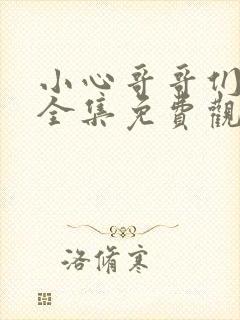 小心哥哥们
全集免費觀
洛脩寒